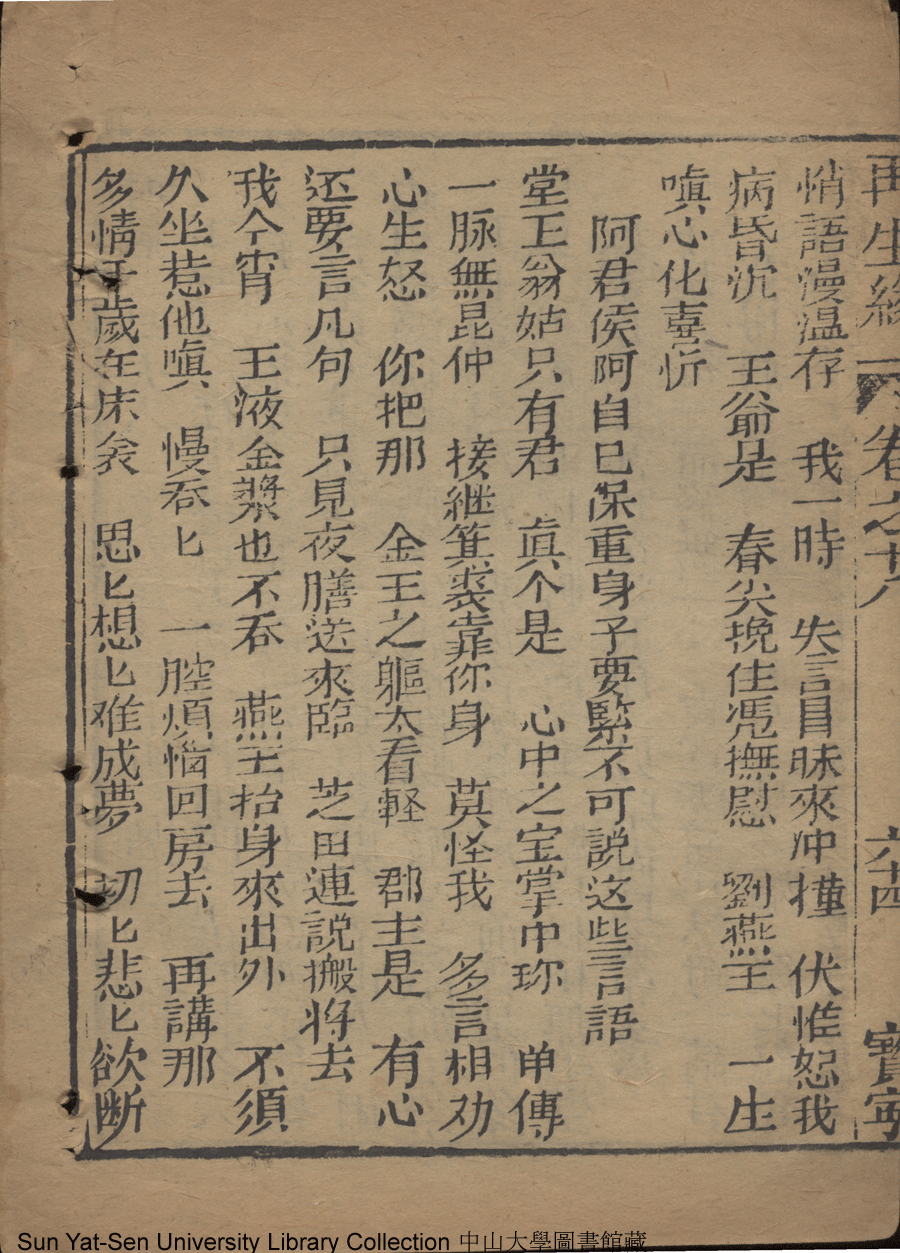 再生緣 卷之十八 六十四 寶寧
悄語漫温存 我一時 失言冒昧來冲撞 伏惟恕我
病昏沉 王爺是 春尖挽住凴撫慰 劉燕王 一生
嗔心化喜忻
阿君侯阿自已保重身子要緊不可説这些言語
堂正翁姑只有君 眞个是 心中之宝掌中珎 单傳
一脉無昆仲 接継箕裘靠你身 莫怪我 多言相劝
心生怒 你把那 金玉之軀太看軽 郡主是 有心
还要言凡句 只見夜膳送來臨 芝田連説搬将去
我今宵 玉液金漿也不吞 燕王抬身來出外 不須
久坐惹他嗔 慢吞匕 一腔煩惱回房去 再講那
多情千歲在床衾 思匕想匕难成夢 切匕悲匕欲断
Sun Yat-Sen University Library Collection 中山大學圖書館藏